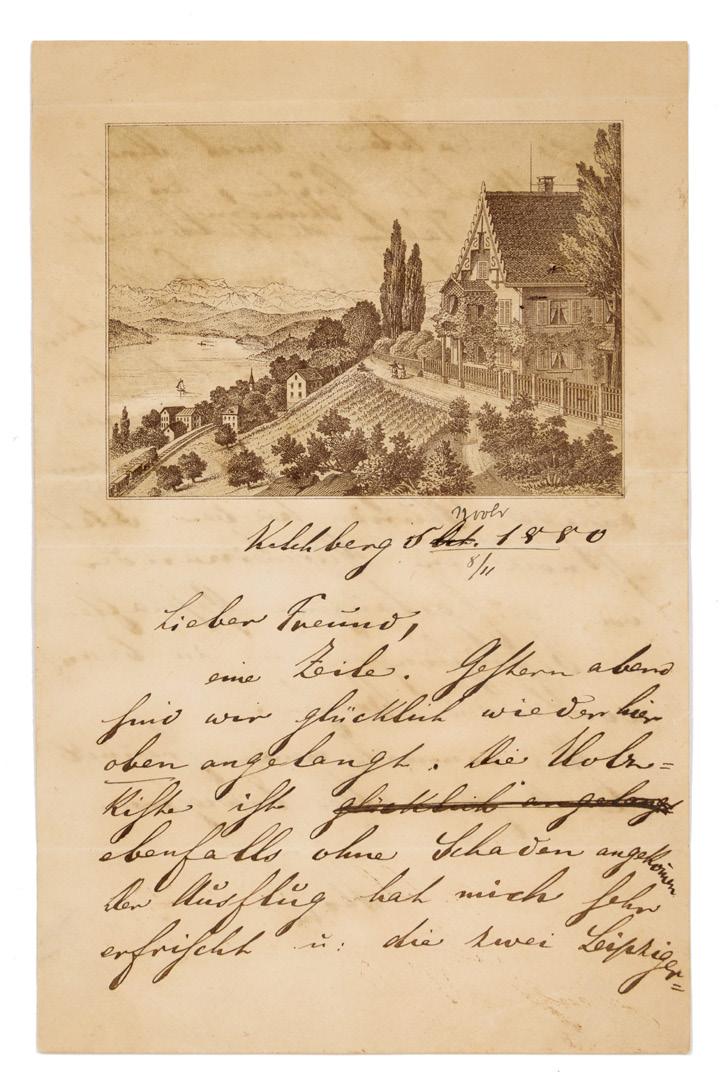 Novbr
Kilchberg 5 Oct. 1880
8/11
Lieber Freund,
eine Zeile. Gestern abend
sind wir glücklich wieder hier
oben angelangt. Die Holz=
kiste ist glücklich angelangt
ebenfalls ohne Schaden angekom̄en
Der Ausflug hat mich sehr
erfrischt u: die zwei Leipziger=